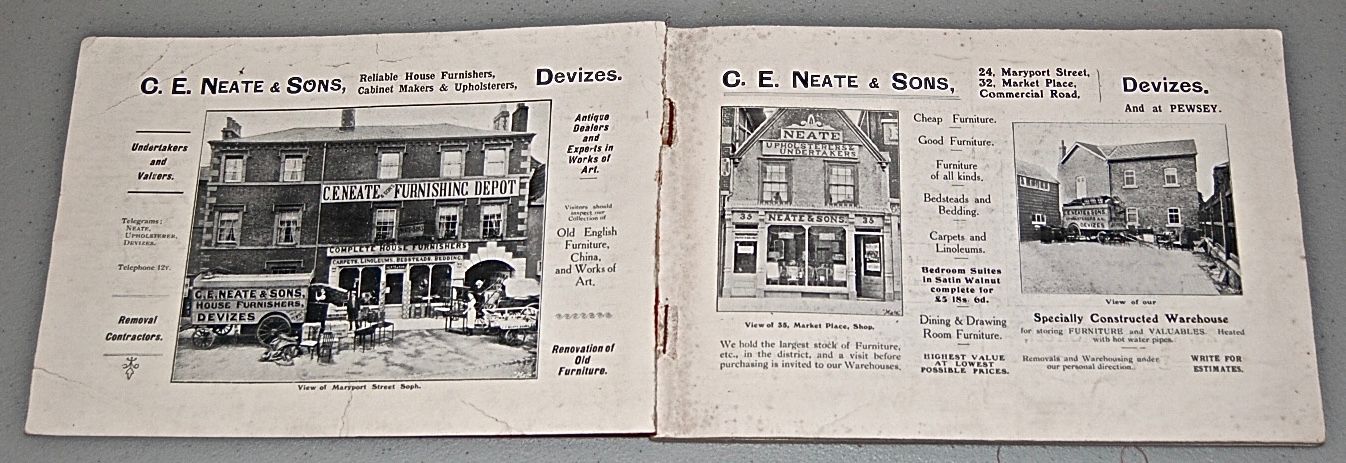 C. E. NEATE & SONS,
Reliable House Furnishers,
Cabinet Makers & Upholsterers,
Devizes.
Undertakers
and
Valuers.
Telegrams:
NEATE,
UPHOLSTERER,
DEVIZES.
Telephone 12Y.
Removal
Contractors.
C.E.NEATE & SONS FURNISHING DEPOT
COMPLETE HOUSE FURNISHERS
CARPETS, LINOLEUMS, BEDSTEADS, BEDDING,
C.E.NEATE & SONS,
HOUSE FURNISHERS,
DEVIZES
View of Maryport Street Soph.
Antique
Dealers
and
Experts in
Works of
Art.
Visitors should
inspect our
Collection of
Old English
Furniture,
China,
and Works of
Art.
Renovation of
Old
Furniture.
C. E. NEATE & SONS,
24, Maryport Street,
32, Market Place,
Commercial Road,
Devizes.
And at PEWSEY.
NEATE
UPHOLSTERERS &
UNDERTAKERS
35 NEATE & SONS 35
View of 35, Market Place, Shop.
We hold the largest stock of Furniture,
etc., in the district, and a visit before
purchasing is invited to our Warehouses.
Cheap Furniture.
Good Furniture.
Furniture
of all kinds.
Bedsteads and
Bedding.
Carpets and
Linoleums.
Bedroom Suites
in Satin Walnut
complete for
£5 18s. 6d.
Dining & Drawing
Room Furniture.
HIGHEST VALUE
AT LOWEST
POSSIBLE PRICES.
C.E.NEATE & SONS
DEVIZES
View of our
Specially Constructed Warehouse
for storing FURNITURE and VALUABLES. Heated
with hot water pipes.
Removals and Warehousing under
our personal direction.
WRITE FOR
ESTIMATES.